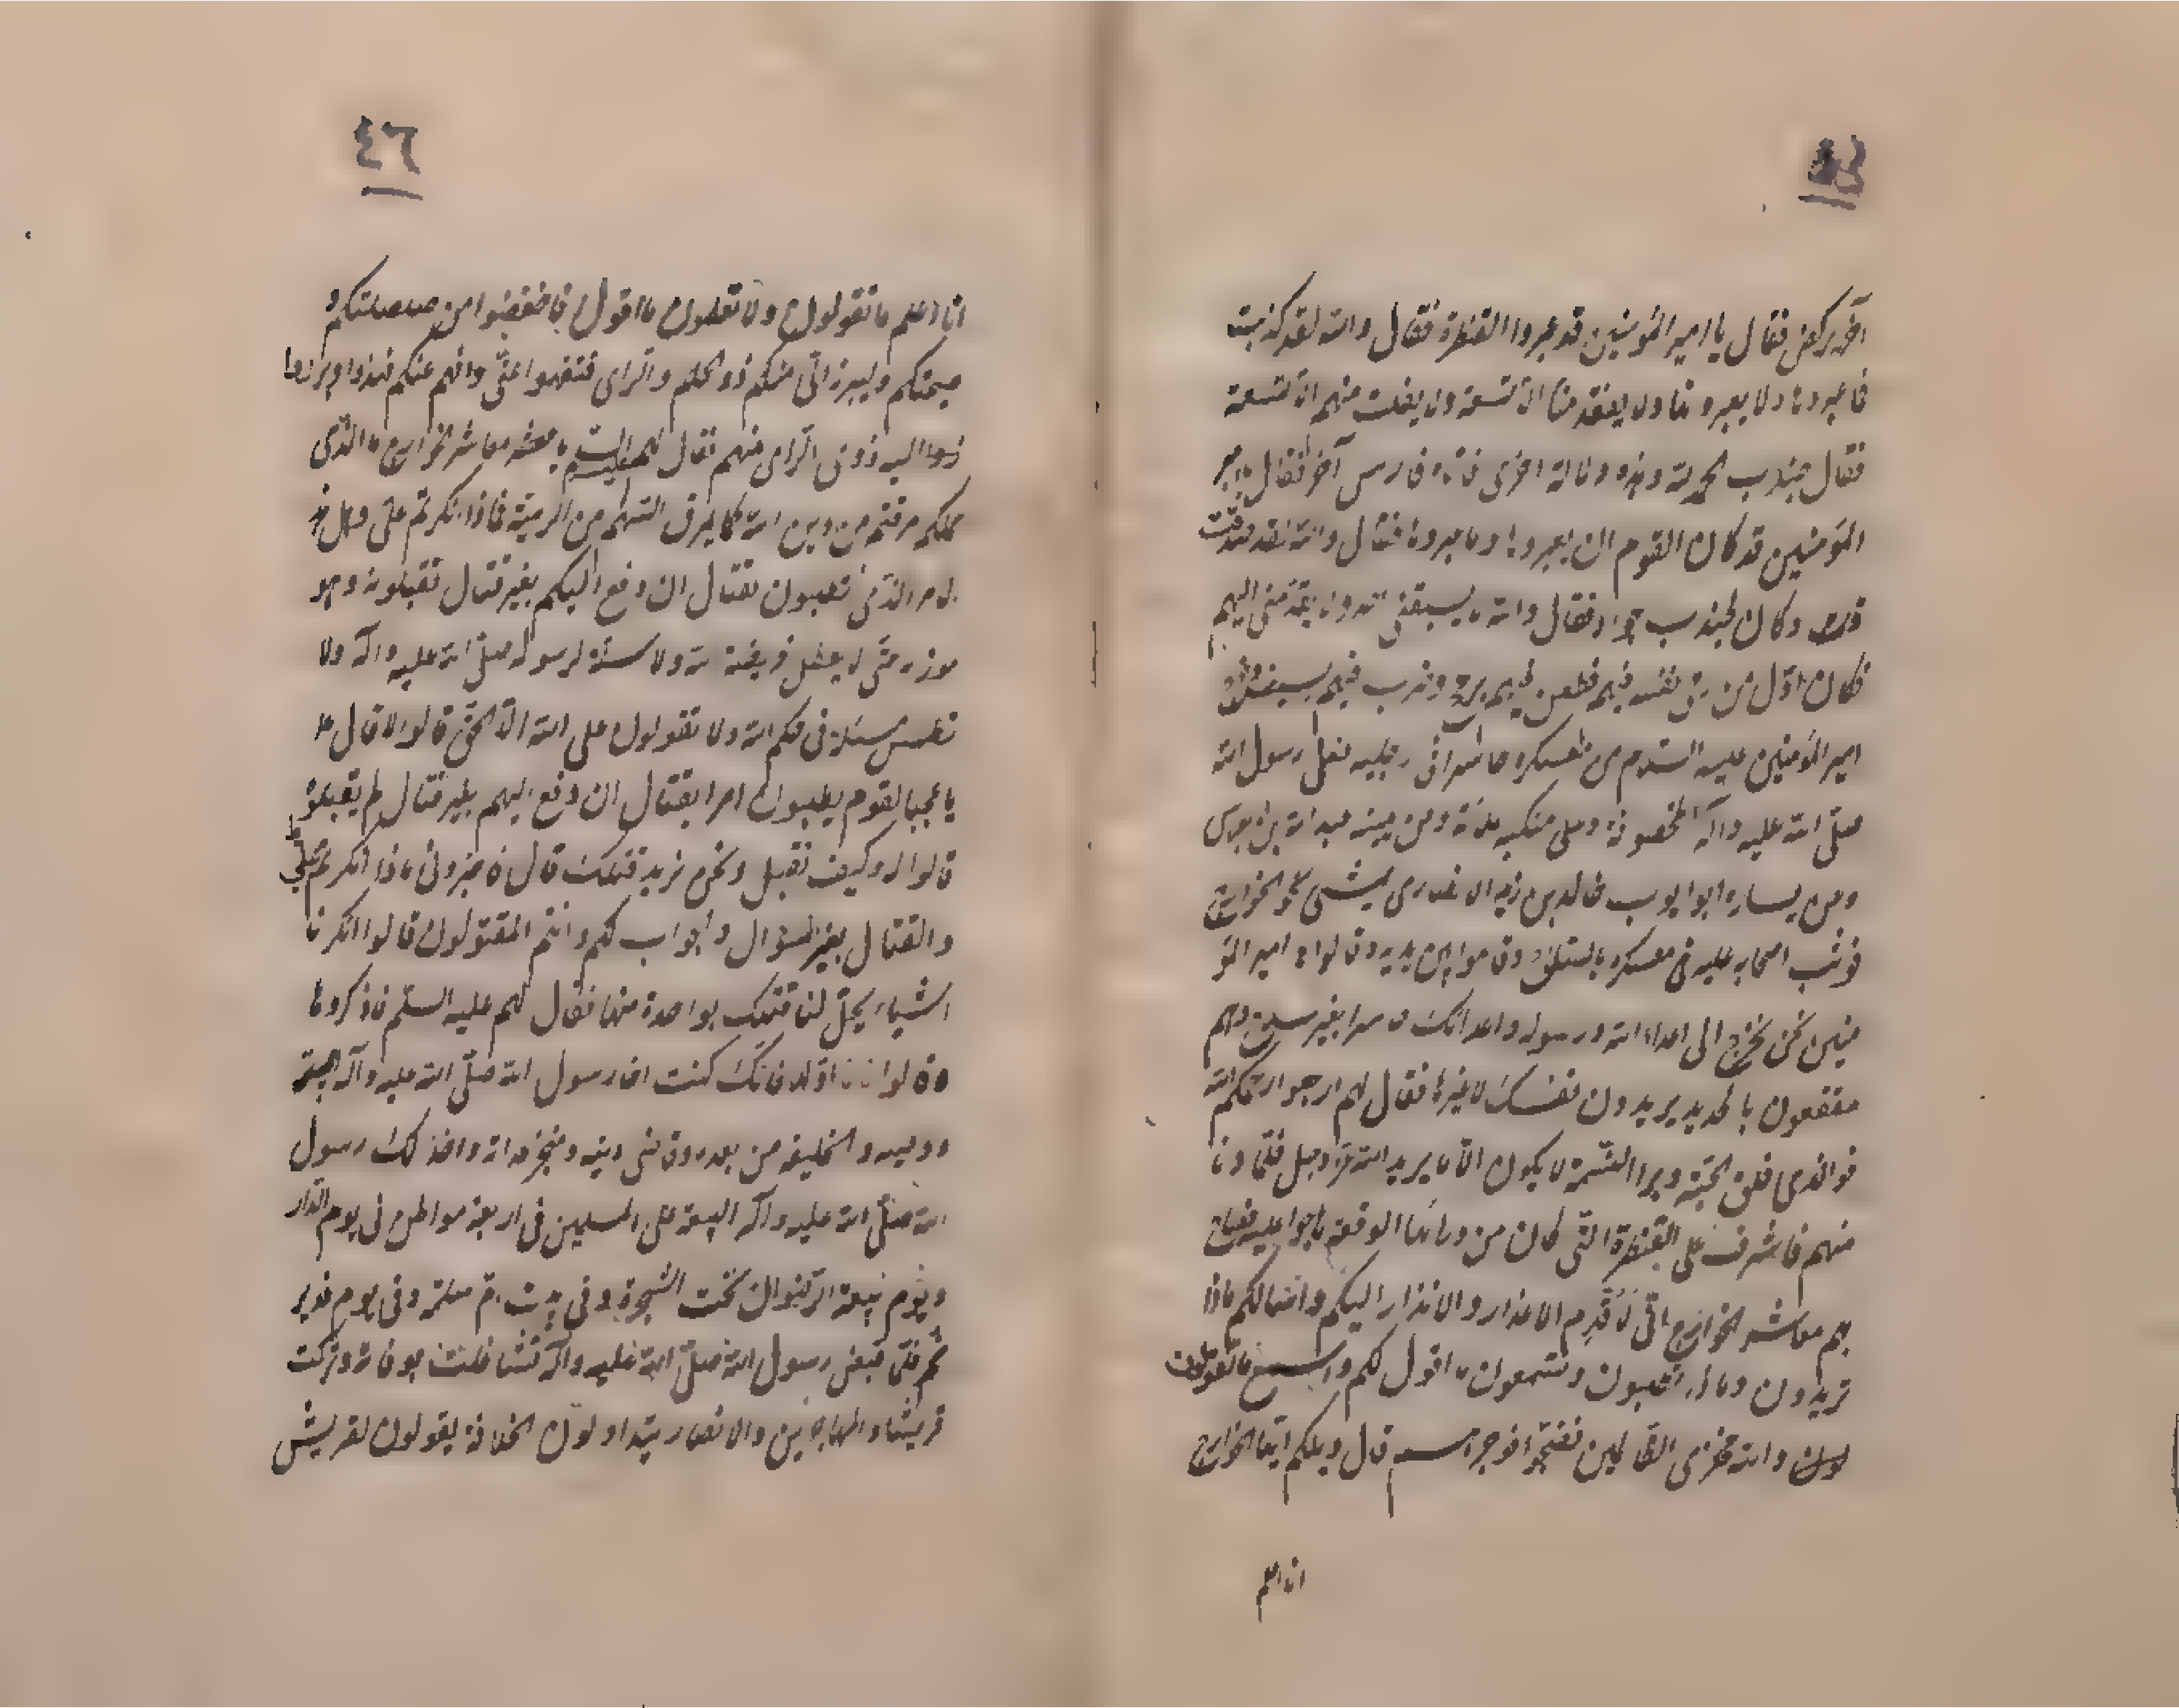 آخر يركض فقال يا امير المؤمنين قد عبروا القنطرة فقال والله لقد كذبت
فاعبروها ولا يعبروها ولا يفقد منا الا تسعة ولا يفلت منهم الا تسعة
فقال جندب الحمد لله وهذه دلالة اخرى فاتاه فارس آخر فقال يا امير
المؤمنين قد كان القوم ان يعبروها وما عبروها فقال والله لقد صدقت
وكان لجندب جواد فقال والله لا يسبقني اليهم
فكان اول من نفسه فيهم فطعن فيهم برمحه وضرب فيهم بسيفه
امير المؤمنين عليه السلام من معسكره حاسرا في رجليه نعلى رسول الله
صلى الله عليه وآله المخصوفة وعلى منكبيه ملائة ومن يمينه عبد الله بن عباس
ومن يساره ابو ايوب خالد بن زيد الانصارى يمشى نحو الخوارج
فوثب اصحابه عليه في معسكره بالسلاح وقاموا بين يديه وقالوا يا امير المؤ
منين نحن نخرج الى اعداء الله ورسوله واعدائك حاسرا بغير سلاح وهم
مقنعون بالحديد يريدون نفسك لا غيرها فقال لهم ارجعوا رحمكم الله
فوالذى فلق الحبة وبرا النسمة لا يكون الا ما يريد الله عز وجل فلما دنا
منهم فاشرف على القنطرة التى كان من ورائها الوقعة ماجوا عليه فصاح
بهم معاشر الخوارج انى لاقدم الاعذار والانذار اليكم واسالكم ماذا
تريدون وما تطلبون وتسمعون ما اقول لكم واسمع ما تقولون
والله مخزى الظالمين قال ويلكم ايها الخوارج
انا اعلم
٤٦
انا اعلم ما تقولون ولا تعلمون ما اقول فاخفضوا من صلصلتكم و
وليبرز الى منكم ذو الحلم والراى فتفهموا عنى وافهم عنكم
اليه ذوى الراى منهم فقال لهم عليه السلام يا معاشر الخوارج ما الذى
مرقتم من دين الله كما يمرق السهم من الرمية فماذا انكرتم على
الامر الذى تطلبون بقتال ان دفع اليكم بغير قتال تقبلونه وهو
حتى لا يعطل فريضة لله ولا سنة لرسوله صلى الله عليه وآله ولا
فى حكم الله ولا تقولون على الله الا الحق قالوا لا قال
يا عجبا لقوم يطلبون امرا بقتال ان دفع اليهم بغير قتال لم يقبلوه
قالوا له وكيف نقبل ونحن نريد قتلك قال فاخبرونى ماذا انكرتم على
والقتال بغير سؤال وجواب لكم وانتم المقتولون قالوا انكرنا
اشياء يحل لنا قتلك بواحدة منها فقال لهم عليه السلم فاذكروها
قالوا اولها فانك كنت اخا رسول الله صلى الله عليه وآله
ووصيه والخليفة من بعده وقاضى دينه ومنجز عداته واخذ لك رسول
الله صلى الله عليه وآله البيعة على المسلمين فى اربعة مواطن فى يوم الدار
ويوم بيعة الرضوان تحت الشجرة وفى بيت ام سلمة وفى يوم غدير
خم فلما قبض رسول الله صلى الله عليه وآله تشاغلت بوفاته وتركت
قريشا والمهاجرين والانصار يتداولون الخلافة يقولون لقريش